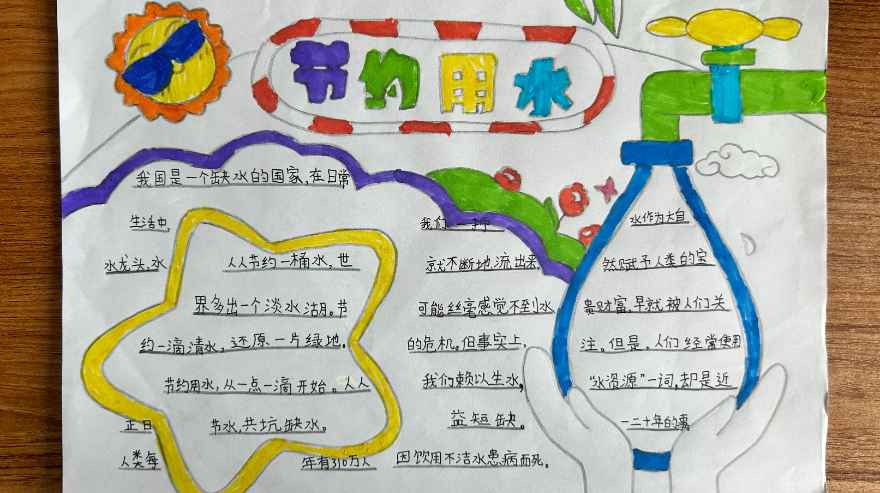 节约用水
我国是一个缺水的国家,在日常
生活中,
我们一拧
水龙头,水
就不断地流出来,
可能丝毫感觉不到水
的危机。但事实上,
我们赖以生水,
益短缺。
正日
人类每
年有310万人
因饮用不洁水患病而死。
人人节约一桶水,世
界多出一个淡水湖。节
约一滴清水,还原一片绿地。
节约用水,从一点一滴开始。人人
节水,共坑缺水。
水作为大自
然赋予人类的宝
贵财富,早就被人们关
注。但是,人们经常使用
"水资源"一词,却是近
一二十年的事